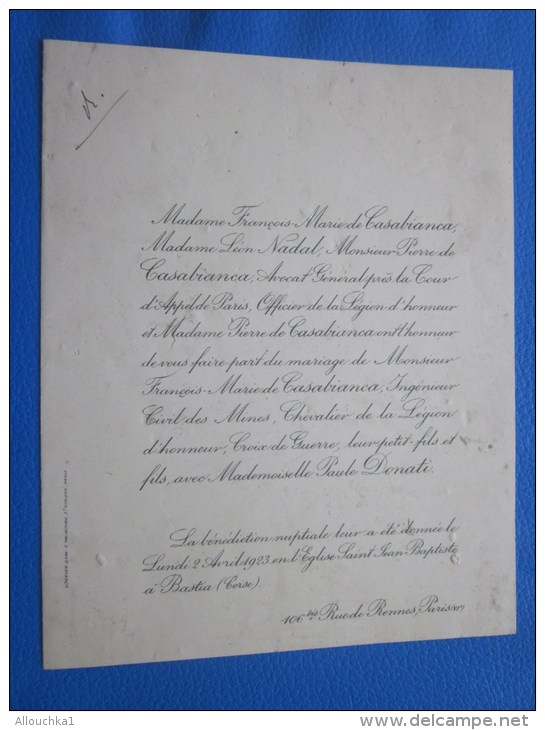 Madame François-Marie de Casabianca,
Madame Léon Nadal, Monsieur Pierre de
Casabianca, Avocat Général près la Cour
d'Appel de Paris, Officier de la Légion d'honneur
et Madame Pierre de Casabianca ont l'honneur
de vous faire part du mariage de Monsieur
François-Marie de Casabianca, Ingénieur
Civil des Mines, Chevalier de la Légion
d'honneur, Croix de Guerre, leur petit-fils et
fils, avec Mademoiselle Paule Donati.
La bénédiction nuptiale leur a été donnée le
Lundi 2 Avril 1923 en l'Eglise Saint Jean-Baptiste
à Bastia (Corse).
106 bis Rue de Rennes, Paris
Allouchka1
http://www.delcampe.net